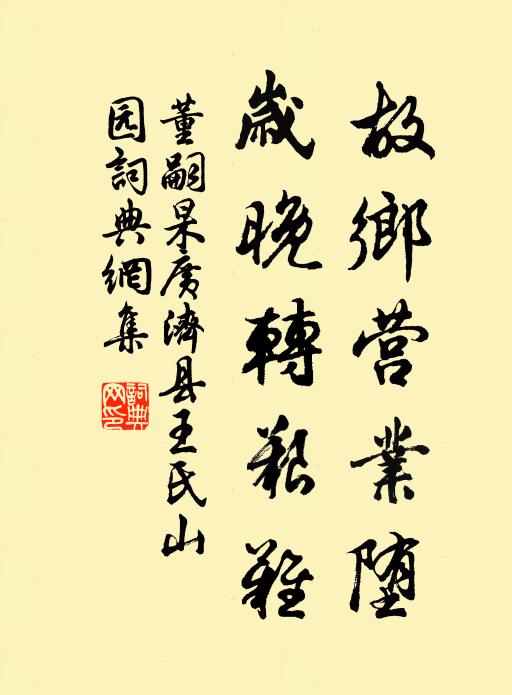 故鄉营業堕
歲晚轉艱難
董嗣杲廣濟县王氏山
园詞典網集
詞典网印